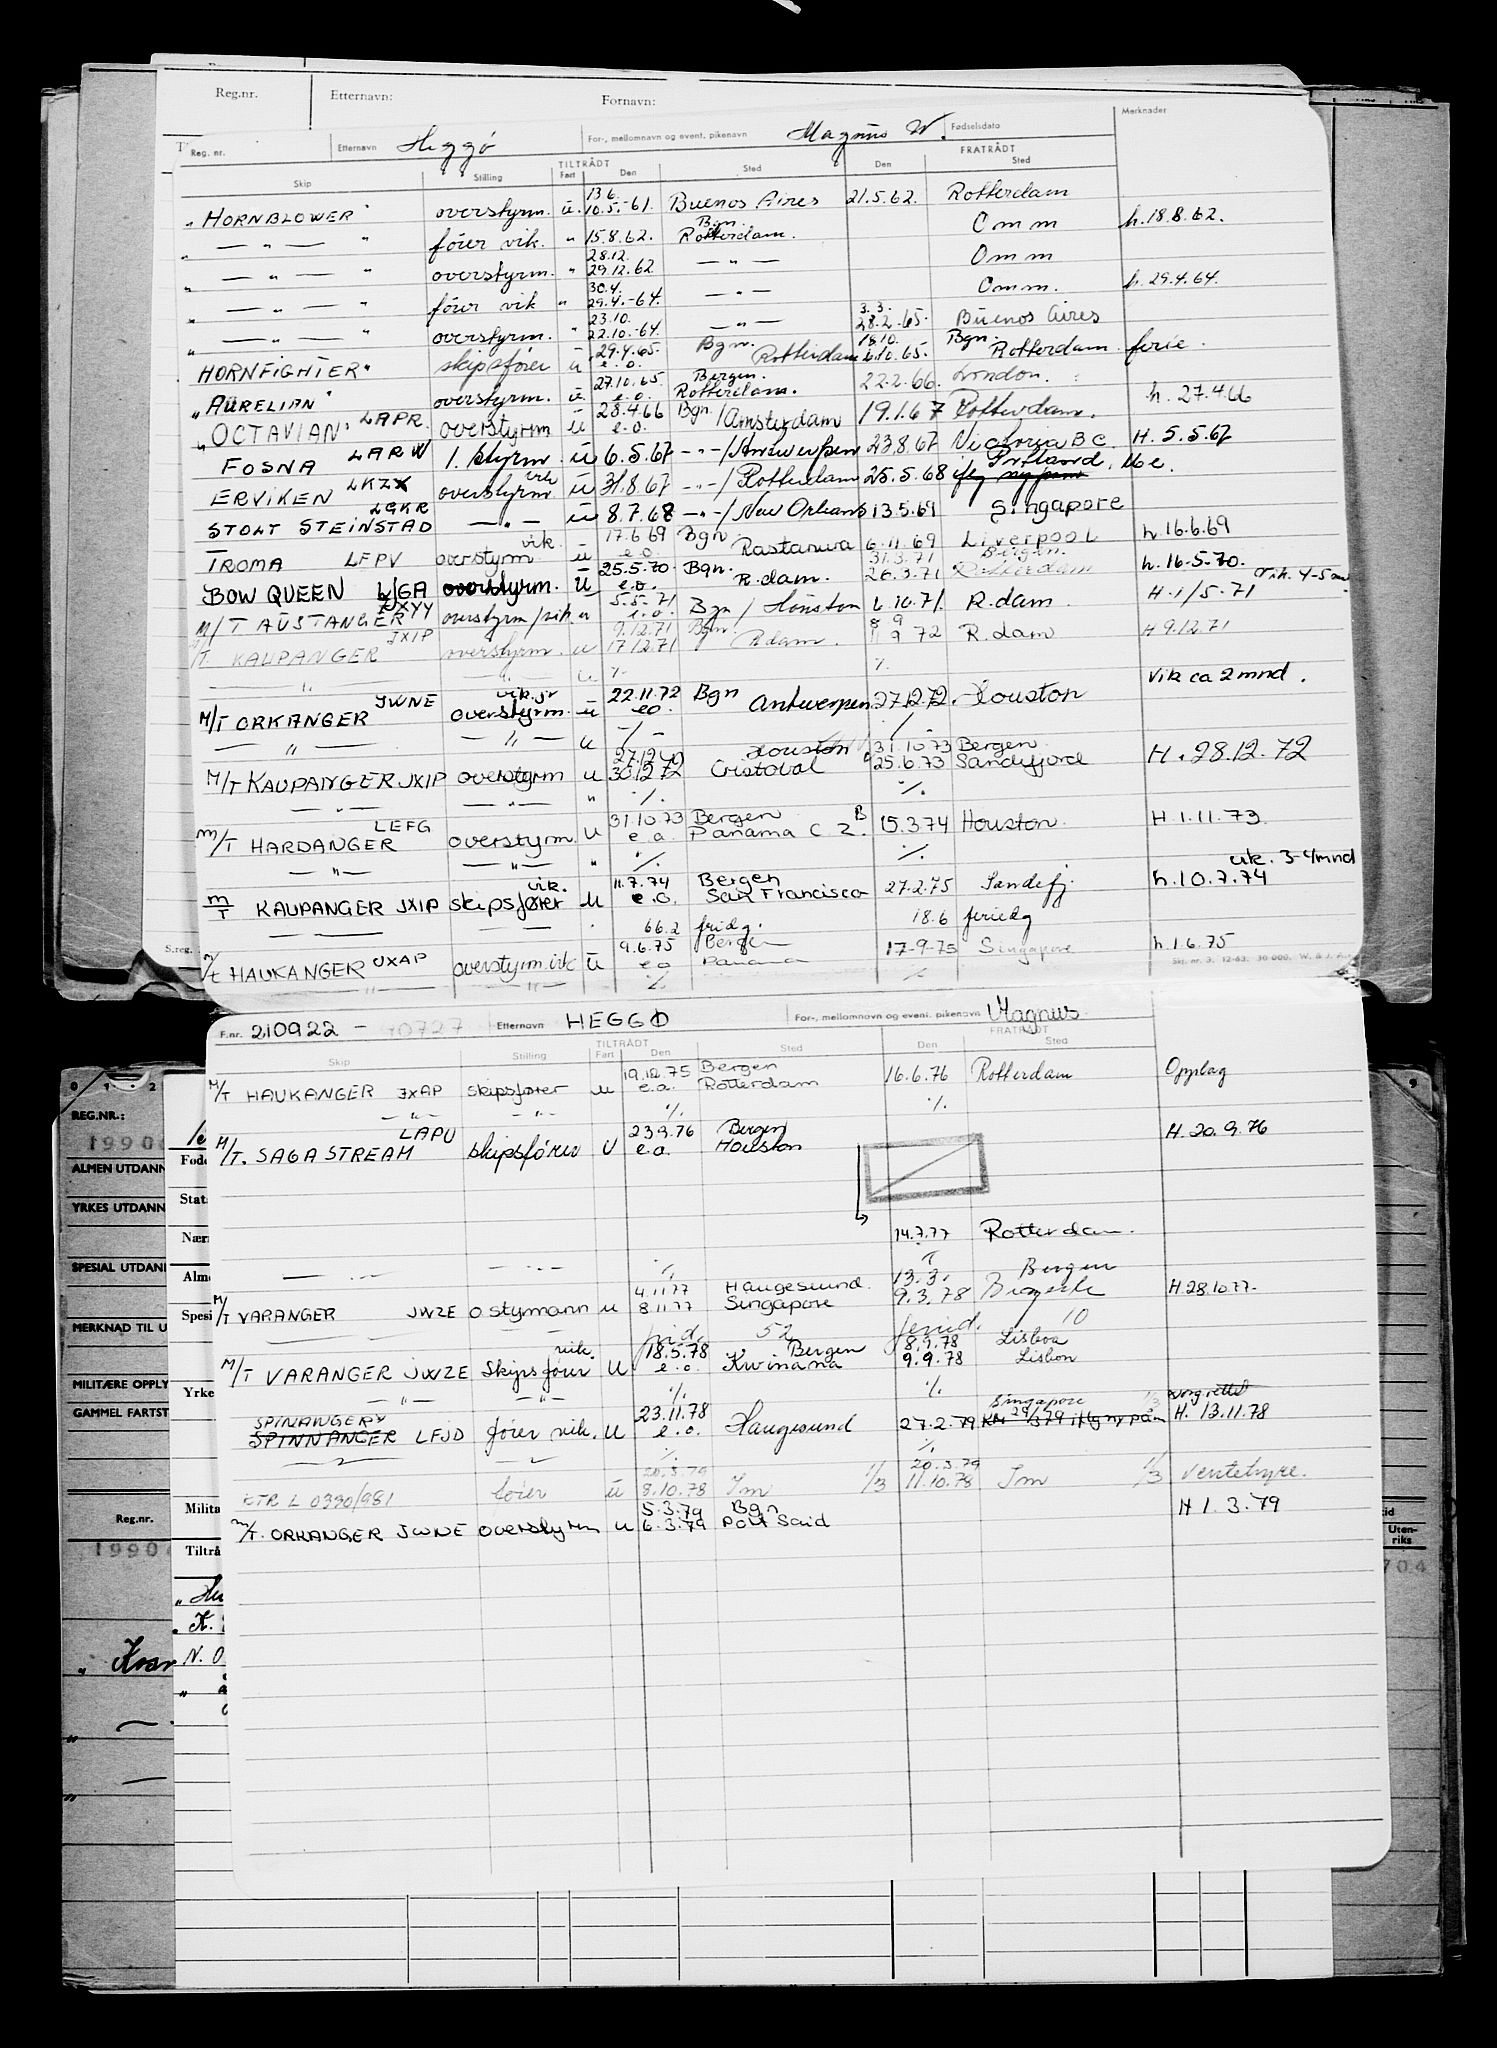 Reg.nr. Etternavn: Fornavn:
Merknader
Reg. nr. Etternavn Heggø For-, mellomnavn og event. pikenavn Magnus W. Fødselsdato
TILTRÅDT FRATRÅDT
Skip Stilling Fart Den Sted Den Sted
13.6.
"HORNBLOWER" overstyrm. u. 10.5.-61. Buenos Aires 21.5.62. Rotterdam
Bgn.
" — " — " fører vik. " 15.8.62. Rotterdam. Omm h. 18.8.62.
28.12.
" — " — " overstyrm. " 29.12.62 — " — Omm
30.4.
" — " — " fører vik " 29.4.-64. — " — Omm. h. 29.4.64.
23.10. 3.3.
" — " — " overstyrm. " 22.10.-64. — " — 28.2.65. Buenos Aires
29.4.65. Bgn. 18.10. Bgn.
HORNFIGHTER" skipsfører u e.o. Rotterdam 6.10.65. Rotterdam ferie.
27.10.65 Bergen.
"AURELIAN" overstyrm. u e.o. Rotterdam. 22.2.66. London.
"OCTAVIAN" LAPR. overstyrm u 28.4.66 e.o. Bgn. / Amsterdam 19.1.67 Rotterdam. h. 27.4.66
FOSNA LARW 1. styrm u 6.5.67 — " — / Antwerpen 23.8.67 Victoria B C. H. 5.5.67
ERVIKEN LKZX overstyrm vik u 31.8.67 — " — / Rotterdam 25.5.68 Portland,
STOLT STEINSTAD LGKR — " — u 8.7.68 — " — / New Orleans 13.5.69 Singapore
TROMA LFPV overstyrm vik. u 17.6.69 e.o. Bgn. Rastanura 6.11.69 Liverpool h. 16.6.69
31.3.71 Bergen.
BOW QUEEN LJGA overstyrm. u 25.5.70 e.o. Bgn. R.dam. 26.3.71 Rotterdam h. 16-5-70.
M/T AUSTANGER JXYY overstyrm/vik u 5.5.71 e.o. Bgn / Houston 6.10.71. R.dam. H.1/5-71 vik. 4-5 mn
M/T KAUPANGER JXIP overstyrm. u 9.12.71 17.12.71 Bgn. R.dam. 9 72 R.dam H 9.12.71
— " — " u %. %.
M/T ORKANGER JWNE overstyrm. vik.jr u 22.11.72 eo Bgn Antwerpen 27.12.72. Houston Vik ca 2 mnd.
— " — — " — u — / — — / —
M/T KAUPANGER JXIP overstyrm u 27.12.72 30.12.72 Houston Cristobal 31.10.73 Bergen 25.6.73 Sandefjord H. 28.12.72
— " — — " — " %. %.
M/T HARDANGER LEFG overstyrm. u 31.10.73 e.a. Bergen Panama C Z. 15.3.74 Houston H. 1.11.73.
— " — — " — " %. %.
vik. 3-4mnd
M/T KAUPANGER JXIP skipsfører vik. u 11.7.74 e.o. Bergen San Francisco 27.2.75 Sandefj. h. 10.7.74
66.2 fridg. 18.6 feriedg
M/T HAUKANGER JXAP overstyrm. vik u 9.6.75 e o Bergen Panama 17-9-75 Singapore h. 1.6.75
S.reg.
Skj. nr. 3. 12-63. 30 000. W. & J. A.
F.nr. 210922 - 40727 Etternavn HEGGØ For-, mellomnavn og event. pikenavn Magnus
TILTRÅDT FRATRÅDT
Skip Stilling Fart Den Sted Den Sted
M/T HAUKANGER JXAP skipsfører u 19.12.75 e.a. Bergen Rotterdam 16.6.76 Rotterdam Opplag
— " — — " — %. %.
M/T. SAGA STREAM LAPU skipsfører U 23.9.76 e.a. Bergen Houston H. 20.9.76
14.7.77 Rotterdam.
— " — — " — %.
13.3. Bergen
M/T VARANGER JWZE O styrmann u 4.11.77 8.11.77 Haugesund. Singapore 9.3.78 H. 28.10.77.
frid. 52 feried. 10
M/T VARANGER JWZE Skipsfører vik. U 18.5.78 e.o. Bergen Kwinana 8.9.78 Lisboa 9.9.78 Lisbon
— " — — " — %. %.
SPINANGER
SPINNANGER LFJD fører vik. U 23.11.78 e.o. Haugesund 27.2.79 Singapore H. 13.11.78
%. %.
ETR L 0390/981 fører u 20.3.79 8.10.78 Im 1/3 20.3.79 11.10.78 Im 1/3 ventehyre.
M/T. ORKANGER JWNE overstyrm u 5.3.79 6.3.79 Bgn Port Said H 1.3.79
REG.NR.:
ALMEN UTDANN
YRKES UTDANN
SPESIAL UTDAN
MERKNAD TIL U
MILITÆRE OPPLY
GAMMEL FARTST
Reg.nr.
Føde
Stat
Nær
Alm
Spesi
Yrke
Milita
Tiltrå
Uten-
riks
704